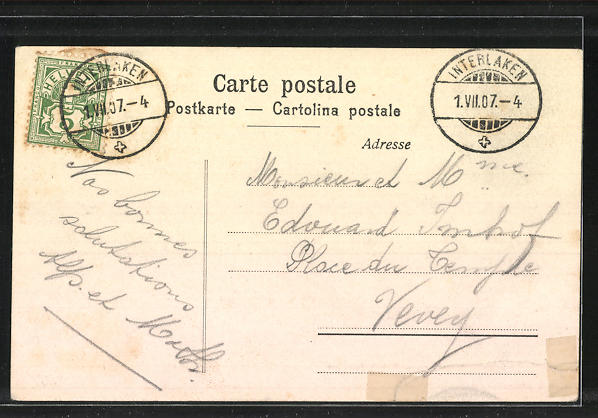 HELVETIA
INTERLAKEN
1.VII.07.-4
INTERLAKEN
1.VII.07.-4
Carte postale
Postkarte — Cartolina postale
Adresse
Monsieur et Mme.
Edouard Imhof
Place du Temple
Vevey
Nos bonnes
salutations
Alp. et